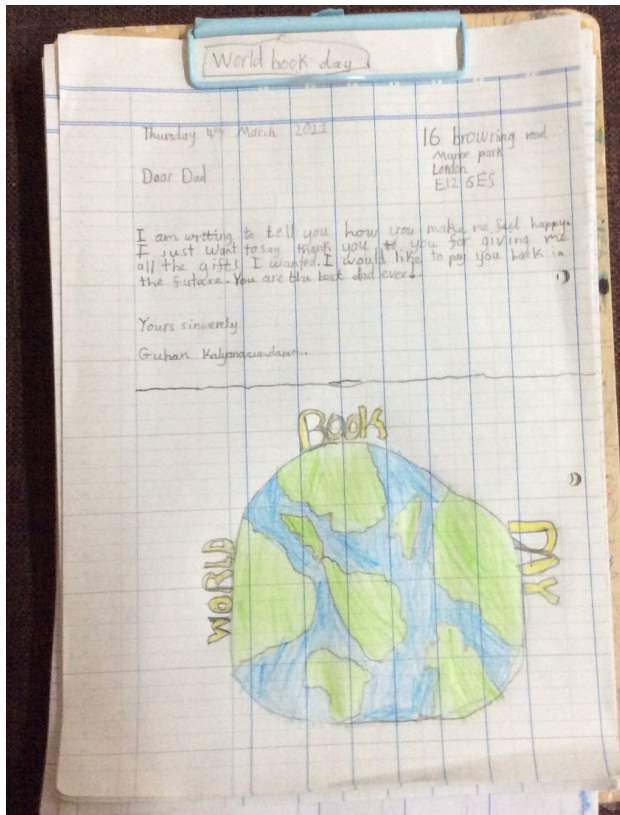 World book day!
Thursday 4th March 2021
16 browning road
Manor park
London
E12 6ES
Dear Dad
I am writting to tell you how you make me feel happy.
I just want to say thank you to you for giving me
all the gifts I wanted. I would like to pay you back in
the future. You are the best dad ever!
Yours sincerely
Guhan Kalyanasundaram.
Book
WORLD
DAY